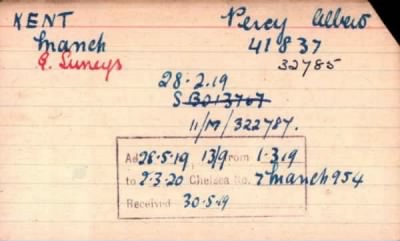 KENT Percy Albert
Manch 41837
E. Surreys 32785
28.2.19
S B213767
11/M/322787.
Ad 26-5-19, 13/9 from 1.3.19
to 2.3.20 Chelsea No. 7 Manch 954
Received 30.5.19